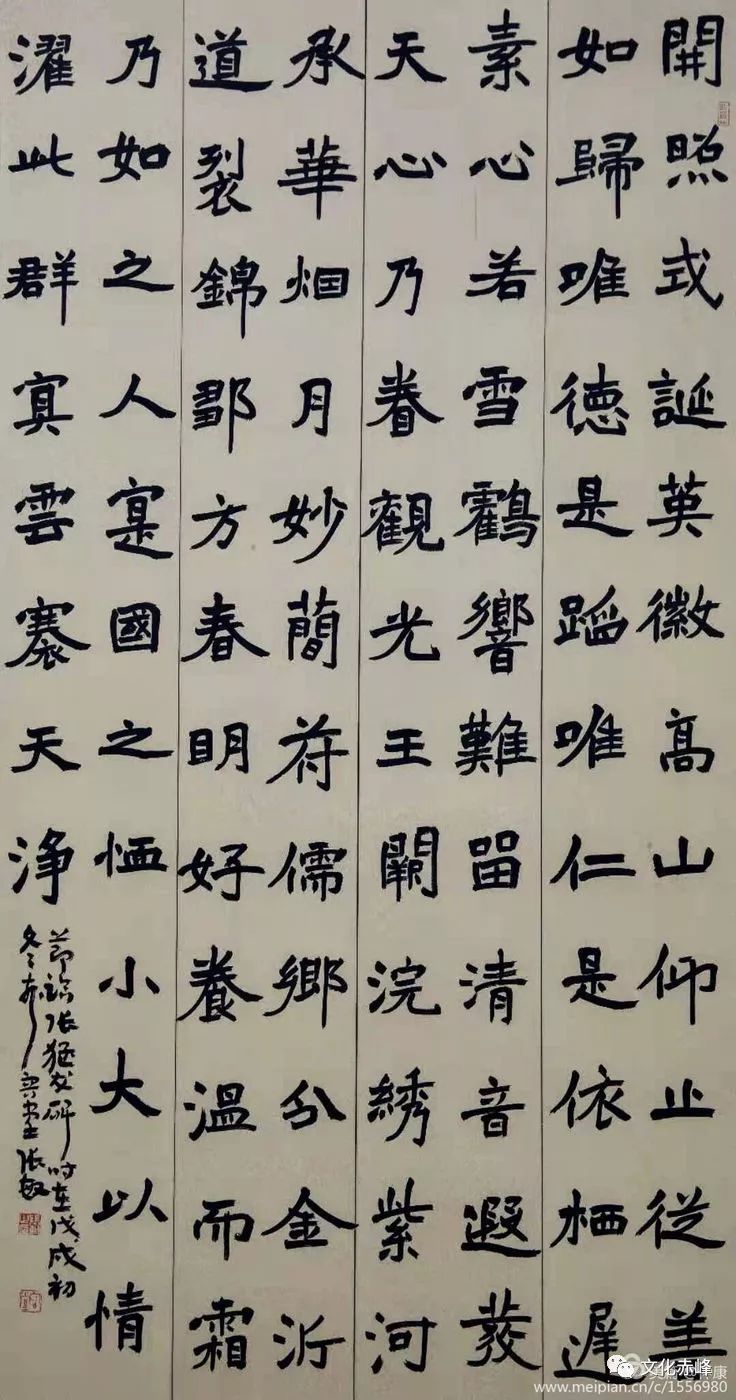 開照式誕英徽高山仰止從善
如歸唯德是蹈唯仁是依栖遲
素心若雪鸖響難留清音遐發
天心乃眷觀光王闕浣綉紫河
承華烟月妙簡苻儒鄉分金沂
道裂錦鄒方春眀好養溫而霜
乃如之人寔國之恤小大以情
濯此群冥雲褰天淨
節錄張猛龍碑 時在戊戌初
冬於 堂 張敏
文化赤峰
www.meipian.cn/c/1556980